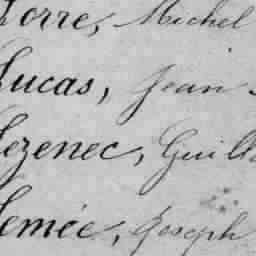 Lorre, Michel
Lucas, Jean
Lezenec, Guill
Lemée, Joseph